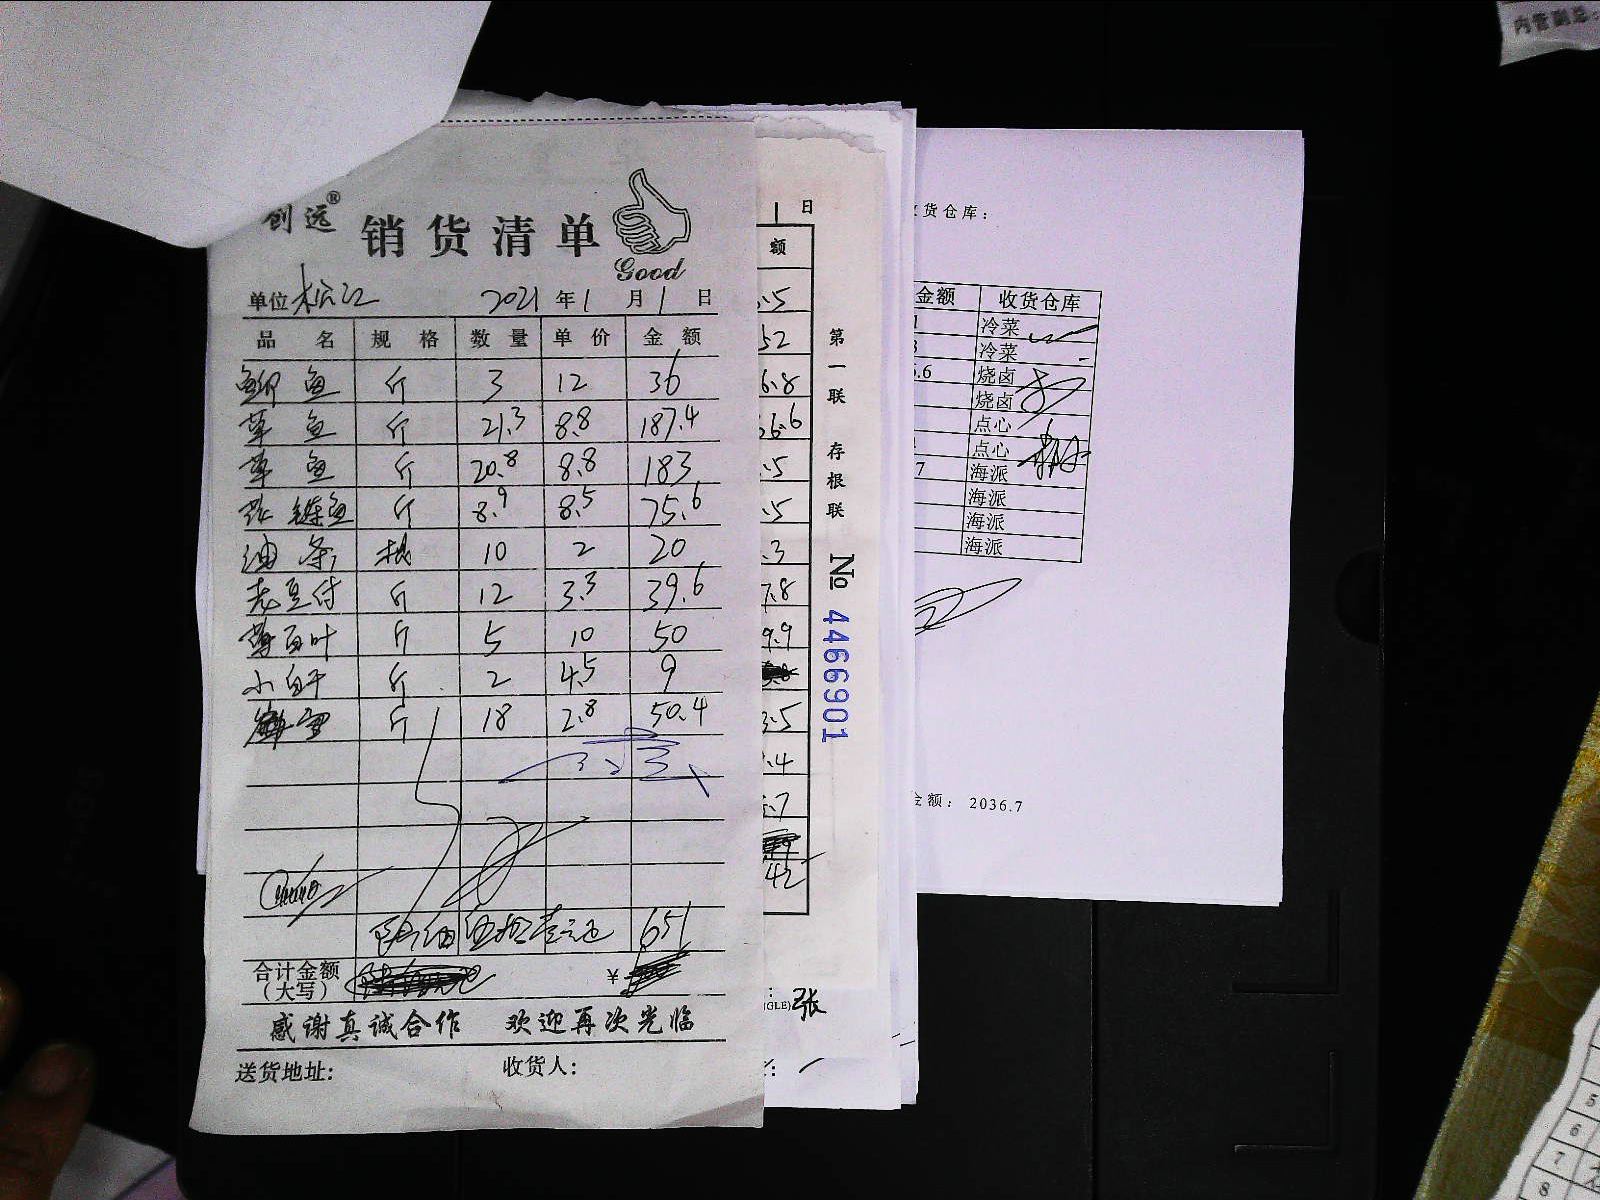 内管副总:
创远®
销货清单
Good
单位 松江 2021年1月1日
品名 规格 数量 单价 金额
鲫鱼 斤 3 12 36
草鱼 斤 21.3 8.8 187.4
草鱼 斤 20.8 8.8 183
花鲢鱼 斤 8.9 8.5 75.6
油条 根 10 2 20
老豆付 斤 12 3.3 39.6
薄百叶 斤 5 10 50
小白干 斤 2 4.5 9
斤 18 2.8 50.4
651
合计金额
(大写) ¥
感谢真诚合作 欢迎再次光临
送货地址: 收货人:
1日
额
.5
52
6.8
66.6
.5
.5
.3
7.8
9.9
3.5
.4
.7
42
第一联 存根联
No 4466901
NGLE) 张
货仓库:
金额 收货仓库
冷菜
冷菜
.6 烧卤
烧卤
点心
点心
7 海派
海派
海派
海派
金额: 2036.7
5
6
7
8